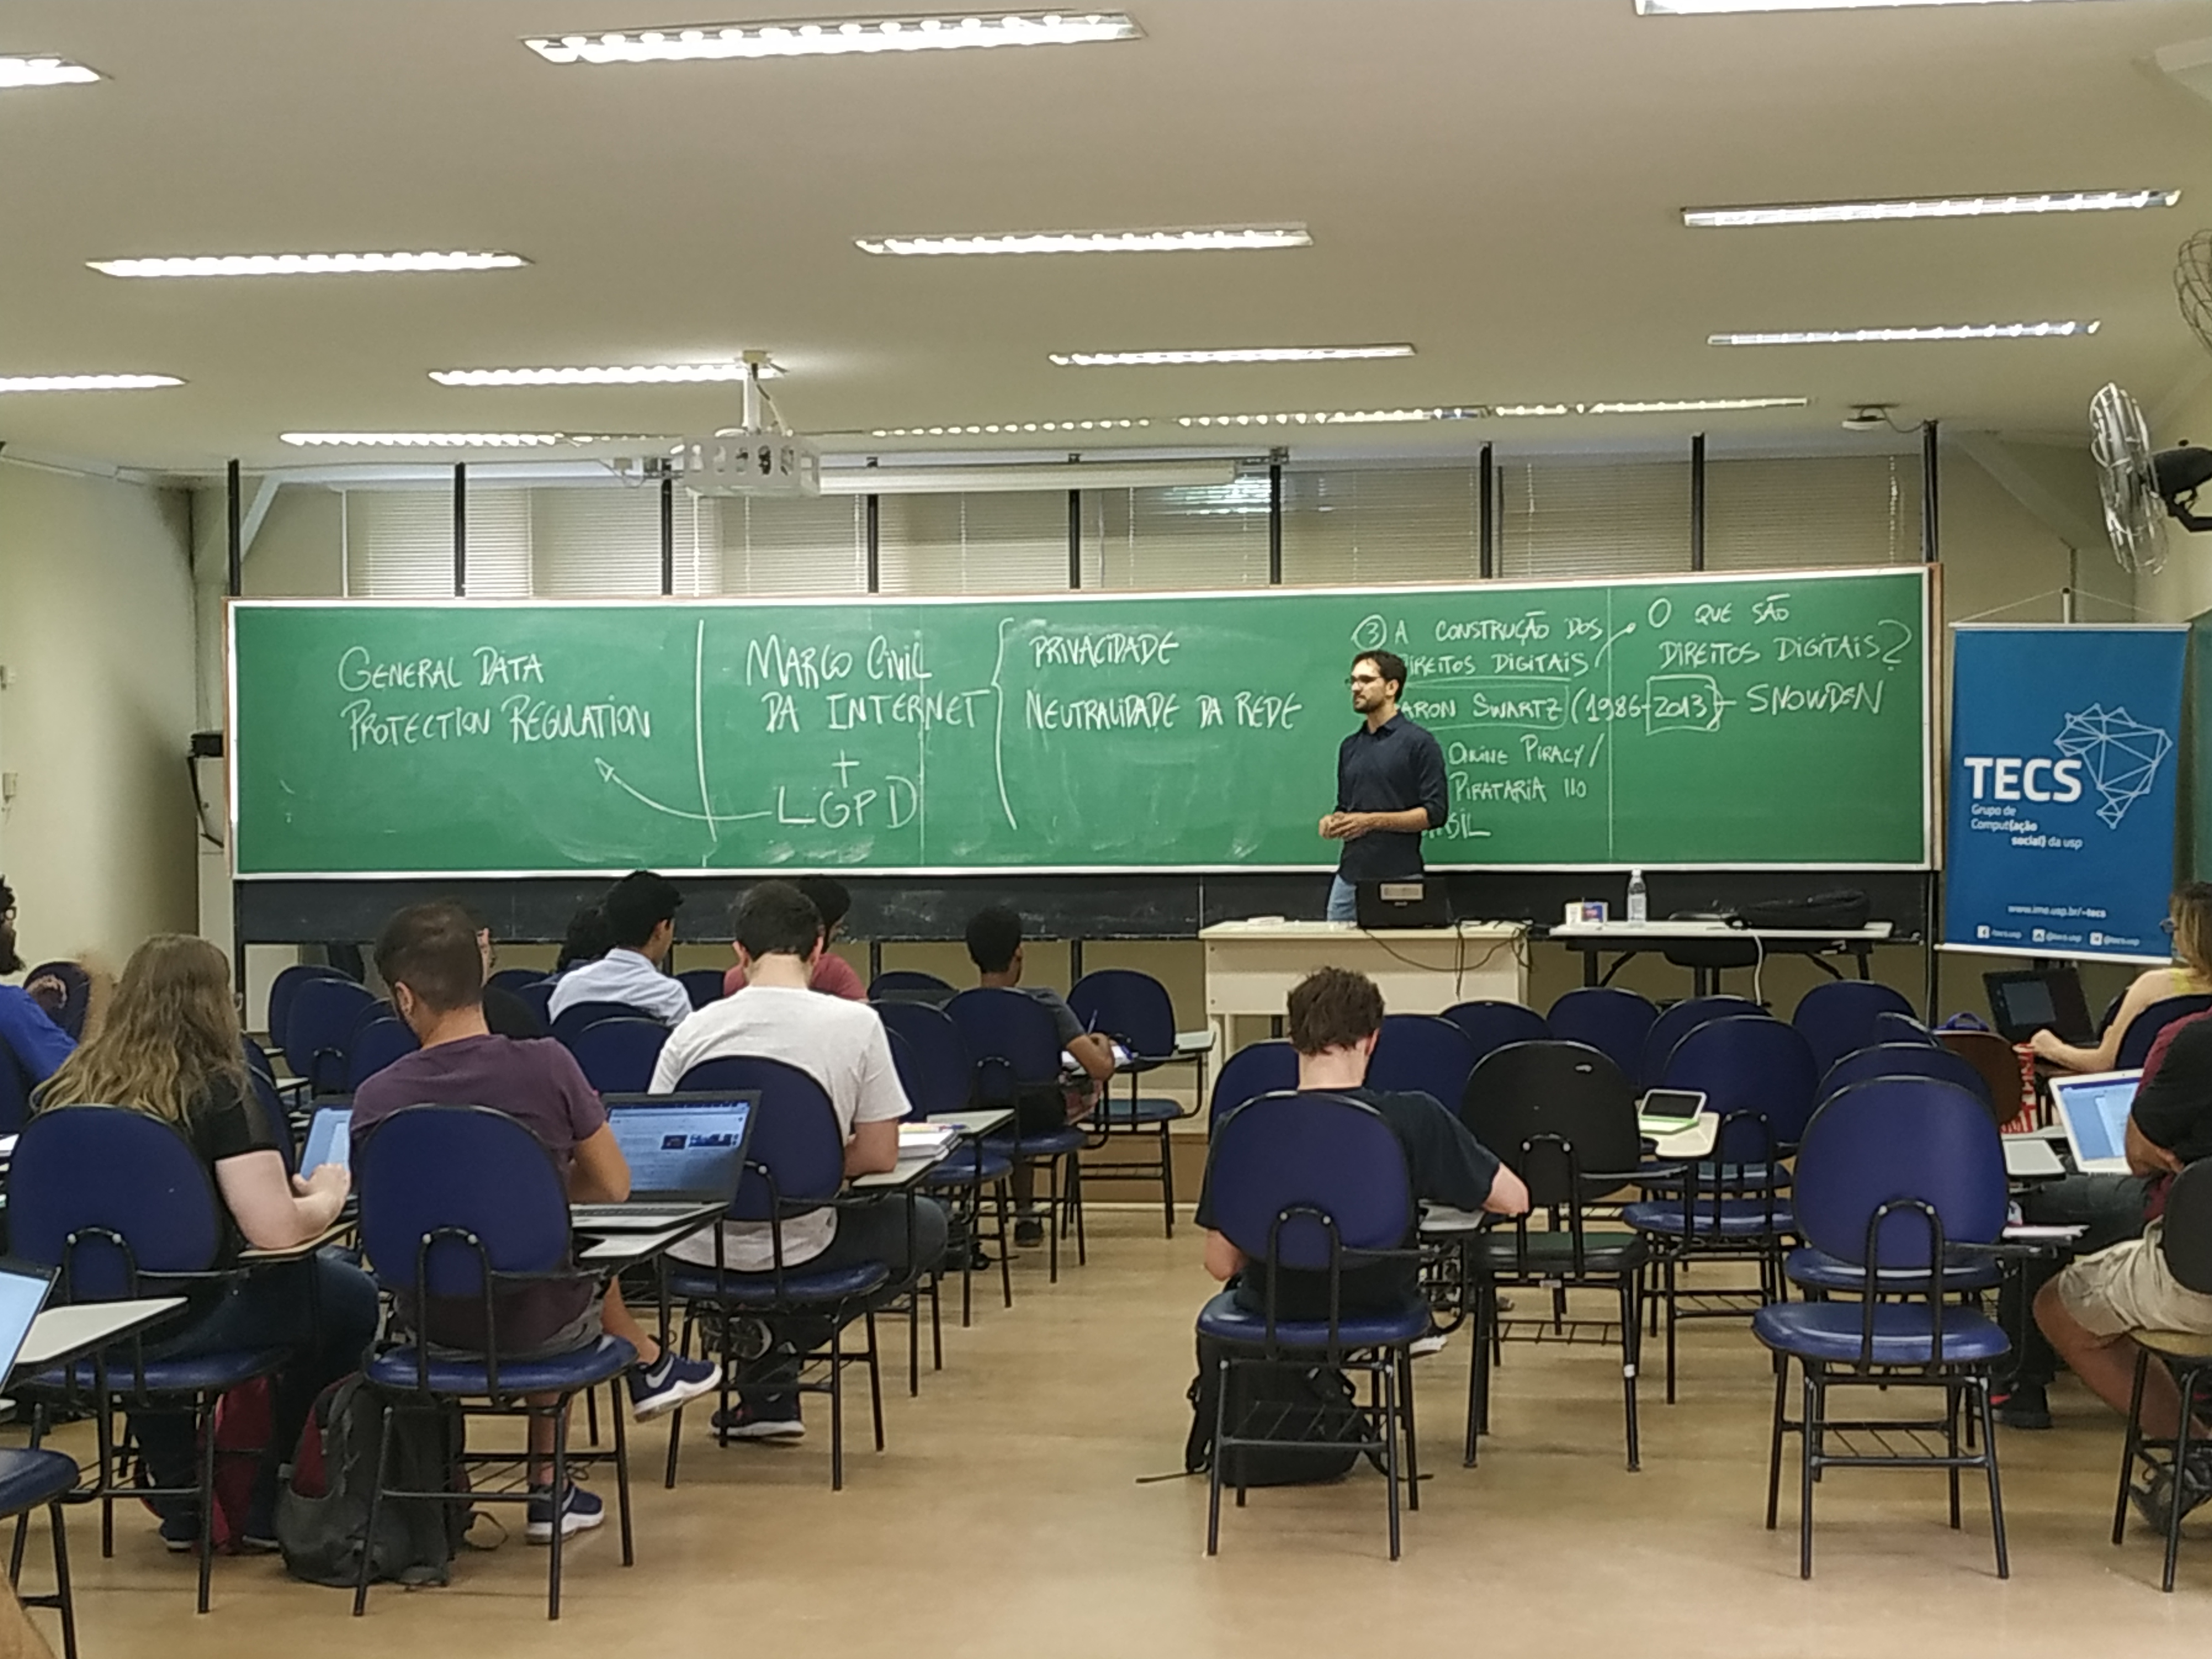 GENERAL DATA
PROTECTION REGULATION
MARCO CIVIL
DA INTERNET
+
LGPD
PRIVACIDADE
NEUTRALIDADE DA REDE
③ A CONSTRUÇÃO DOS
DIREITOS DIGITAIS
AARON SWARTZ (1986-2013) - SNOWDEN
ONLINE PIRACY/
PIRATARIA NO
O QUE SÃO
DIREITOS DIGITAIS?
TECS
Grupo de
Comput(ação
social) da usp
www.ime.usp.br/~tecs
/tecs.usp @tecs.usp @tecs.usp